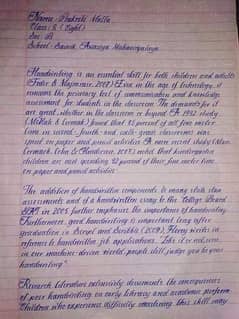 Name: Prakriti Malla
Class: 8 (Eight)
Sec: B
School: Adarsha Awasiya Mahavidyalaya
Handwriting is an essential skill for both children and adults
(Feder & Majnemer, 2007). Even in the age of technology, it
remains the primary tool of communication and knowledge
assessment for students in the classroom. The demands for it
are great, whether in the classroom or beyond. A 1992 study
(McHale & Cermak) found that 85 percent of all fine motor
time in second- fourth- and sixth-grade classrooms was
spent on paper and pencil activities. A more recent study (Marr,
Cermak, Cohn & Henderson, 2003) noted that kindergarten
children are now spending 42 percent of their fine motor time
on paper and pencil activities.
The addition of handwritten components to many state
assessments and of a handwritten essay to the College Board
SAT in 2005 further emphasize the importance of handwriting.
Furthermore, good handwriting is important long after
graduation. In Script and Scribble (2009), Florey writes in
reference to handwritten job applications, "Like it or not, even
in our machine-driven world, people still judge you by your
handwriting."
Research literature extensively documents the consequences
of poor handwriting on early literacy and academic perform
Children who experience difficulty mastering this skill may